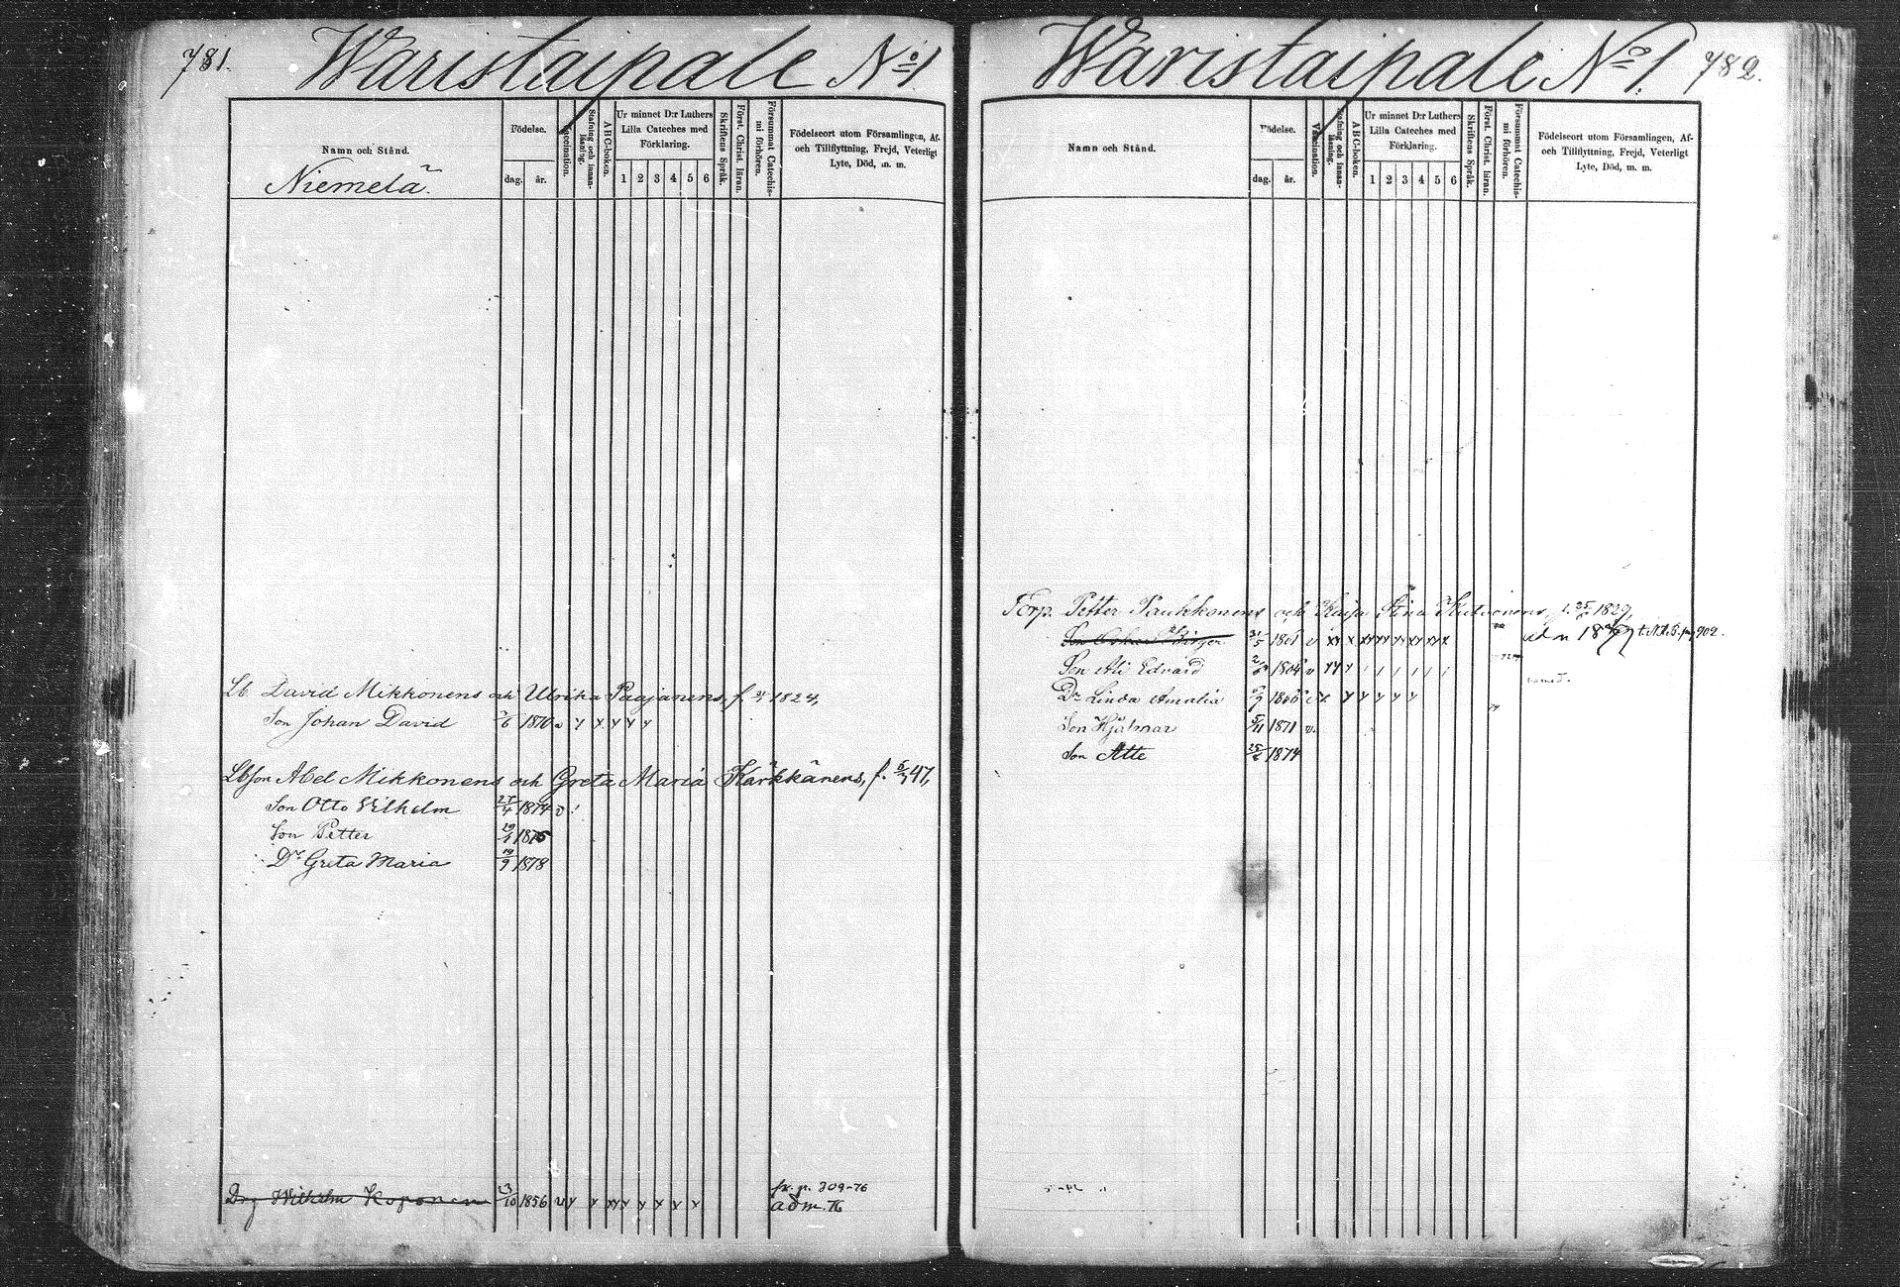 781. Waristaipale No 1.
Namn och Stånd.
Niemelä.
Födelse.
dag.
år.
Vaccination.
Stafning och innan-läsning.
ABC-boken.
Ur minnet D:r Luthers
Lilla Cateches med
Förklaring.
1 2 3 4 5 6
Skriftens Språk.
Först. Christ. läran.
Försummat Catechis-mi förhören.
Födelseort utom Församlingen, Af-
och Tillflyttning, Frejd, Veterligt
Lyte, Död, m. m.
Lb David Mikkonens och Ulrika Paajanens, f. 1824,
Son Johan David 1870 v y y y y y
Lbson Abel Mikkonens och Greta Maria Kärkkänens, f. 5/7 47,
Son Otto Vilhelm 27/4 1874 v
Son Petter 1875
Dr Greta Maria 19/9 1878
fr. p. 309-76
Drg Wilhelm Koponen 13/10 1856 v y y y y y y y y adm. 76
Waristaipale No 1. 782.
Namn och Stånd.
Födelse.
dag.
år.
Vaccination.
Stafning och innan-läsning.
ABC-boken.
Ur minnet D:r Luthers
Lilla Cateches med
Förklaring.
1 2 3 4 5 6
Skriftens Språk.
Först. Christ. läran.
Försummat Catechis-mi förhören.
Födelseort utom Församlingen, Af-
och Tillflyttning, Frejd, Veterligt
Lyte, Död, m. m.
Torp. Petter Paukkonens och Kaija Stina Kutvonens, f. 1829,
Son 1861 v p. 902.
Son Edvard
Dr Linda Amalia
Son Hjalmar 5/11 1871 v.
Son Atte 1874